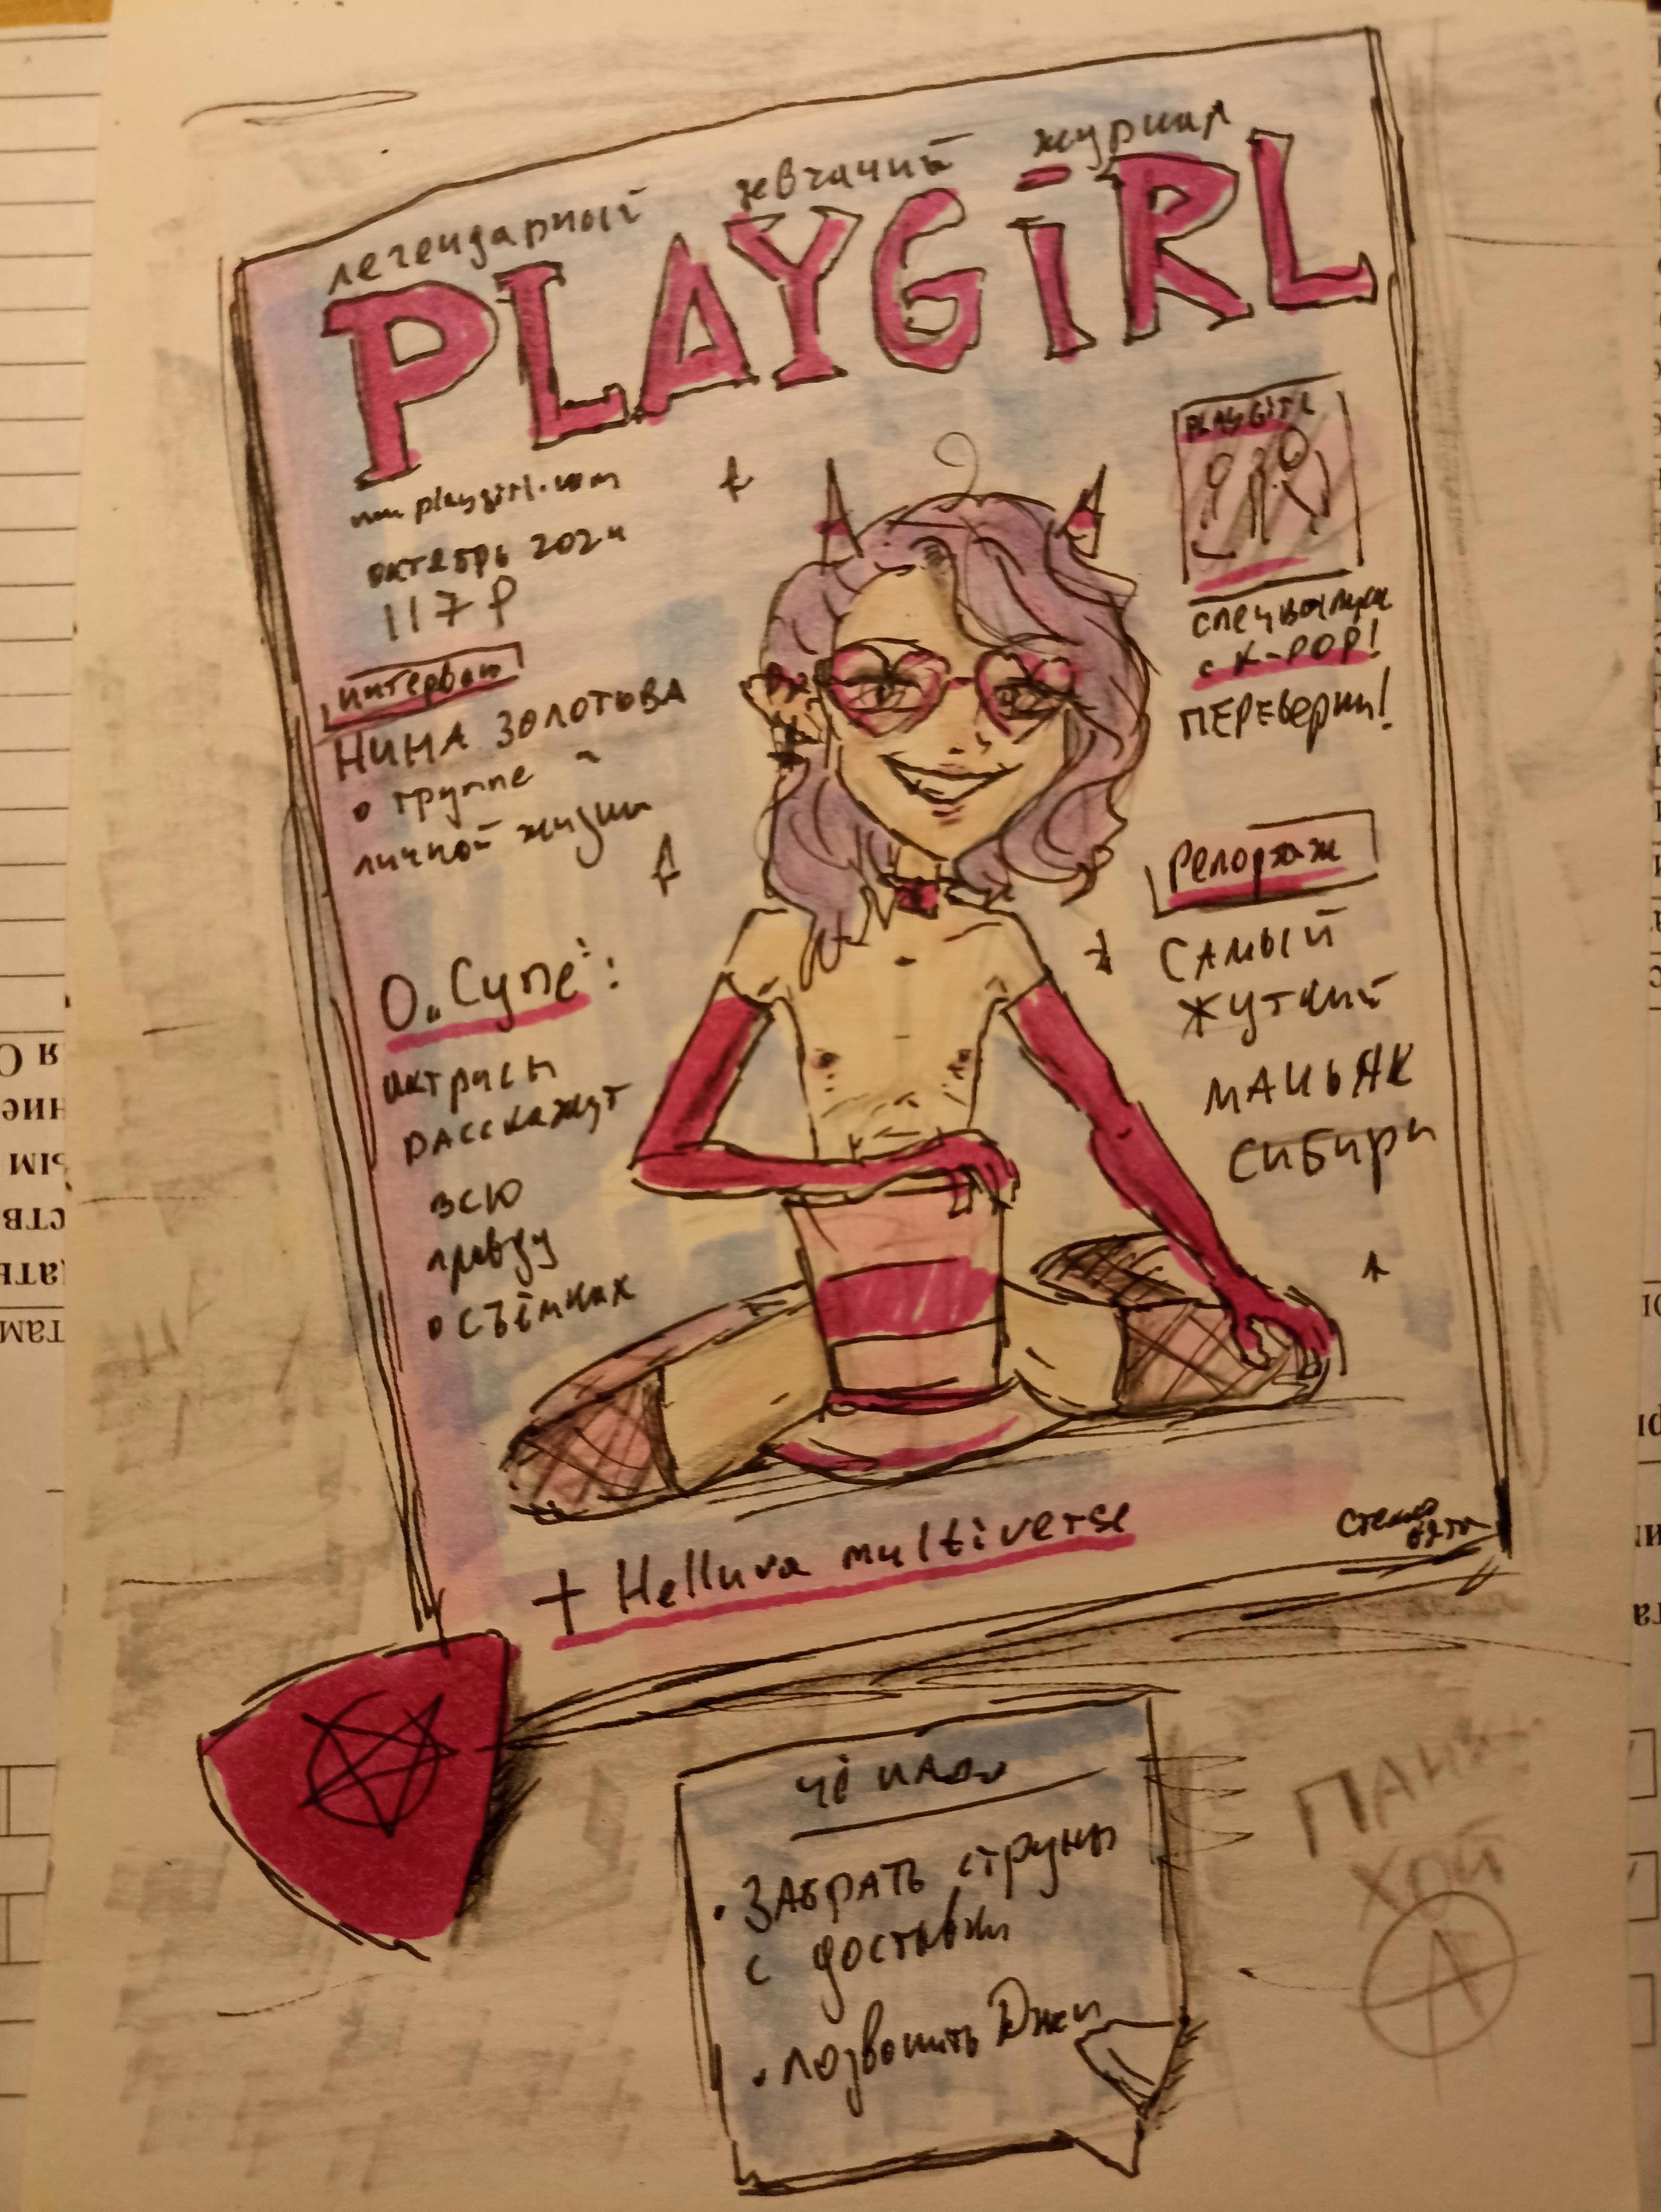 легендарный девчачий журнал
PLAYGiRL
www.playgirl.com
октябрь 2024
117 Р
интервью
НИНА ЗОЛОТОВА
о группе и
личной жизни
О „Супе“:
актрисы
расскажут
всю
правду
о съёмках
PLAYGiRL
спецвыпуск
с K-POP!
ПЕРЕВерни!
Репортаж
САМЫЙ
ЖУТКИЙ
МАНЬЯК
СИБИРИ
+ Helluva multiverse
чё надо
• ЗАБРАТЬ струны
с доставки
• позвонить Джен
ПАНК
ХОЙ
A